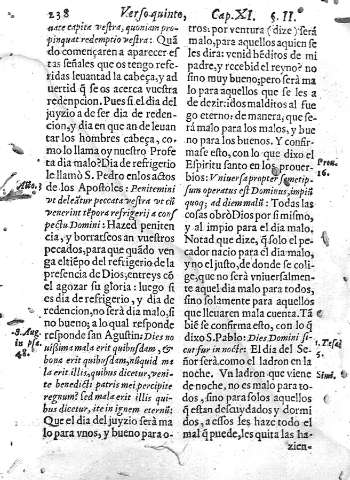 238 Verso quinto, Cap. XI. §. II.
uate capita vestra, quoniam pro-
pinquat redemptio vestra: Quã
do començaren a aparecer es
tas señales que os tengo refe-
ridas leuantad la cabeça, y ad
uertid q̃ se os acerca vuestra
redenpcion. Pues si el dia del
juyzio a de ser dia de reden-
cion, y dia en que an de leuan
tar los hombres cabeça, co-
mo lo llama oy nuestro Profe
ta dia malo? Dia de refrigerio
le llamò S. Pedro en los actos
Acto. 3
de los Apostoles: Penitemini
vt deleātur peccata vestra vt cū
venerint tẽpora refrigerij a con
spectu Domini: Hazed peniten
cia, y borrarseos an vuestros
pecados, para que quãdo ven
ga el tiẽpo del refrigerio de la
presencia de Dios; entreys cõ
el agozar su gloria: luego si
es dia de refrigerio, y dia de
redencion, no serà dia malo, si
no bueno; a lo qual responde
responde san Agustin: Dies no
S. Aug.
in psa.
48.
uissima mala erit quibusdam, &
bona erit quibusdam, nũquid ma
la erit illis, quibus dicetur, veni-
te benedicti patris mei percipite
regnum? sed mala erit illis qui-
bus dicetur, ite in ignem eternũ:
Que el dia del juyzio serà ma
lo para vnos, y bueno para o-
tros: por ventura (dize) serà
malo, para aquellos a quien se
les dira: venid bẽditos de mi
padre, y recebid el reyno? no
sino muy bueno; pero serà ma
lo para aquellos que se les a
de dezir: idos malditos al fue
go eterno: de manera, que se
rà malo para los malos, y bue
no para los buenos. Y confir-
mase esto, con lo que dixo el
Espiritu santo en los prouer-
Prou.
16.
bios: Vniuersa propter semetip-
sum operatus est Dominus, impiũ
quoq; ad diem malũ: Todas las
cosas obrò Dios por si mismo,
y al impio para el dia malo.
Notad que dize, q̃ solo el pe-
cador nacio para el dia malo,
y no el justo, de donde se coli-
ge, que no serà vniuersalmen-
te aquel dia malo para todos,
sino solamente para aquellos
que lleuaren mala cuenta. Tã
biẽ se confirma esto, con lo q̃
dixo S. Pablo: Dies Domini si
1. Tesal
5.
cut fur in nocte: El dia del Se-
ñor serà, como el ladron en la
Simi.
noche. Vn ladron que viene
de noche, no es malo para to-
dos, sino para solos aquellos
q̃ estan descuydados y dormi
dos, a essos les haze todo el
mal q̃ puede, les quita las ha-
zien-